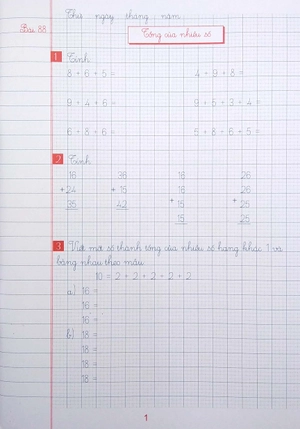 Thứ ngày tháng năm
Bài 88
Tổng của nhiều số
1 Tính
8 + 6 + 5 = 4 + 9 + 8 =
9 + 4 + 6 = 9 + 5 + 3 + 4 =
6 + 8 + 6 = 5 + 8 + 6 + 5 =
2 Tính
16 36 16 26
+ 24 + 15 16 26
35 42 + 15 + 25
15 25
3 Viết mỗi số thành tổng của nhiều số hạng khác 1 và
bằng nhau theo mẫu
10 = 2 + 2 + 2 + 2 + 2
a) 16 =
16 =
16 =
b) 18 =
18 =
18 =
18 =
1